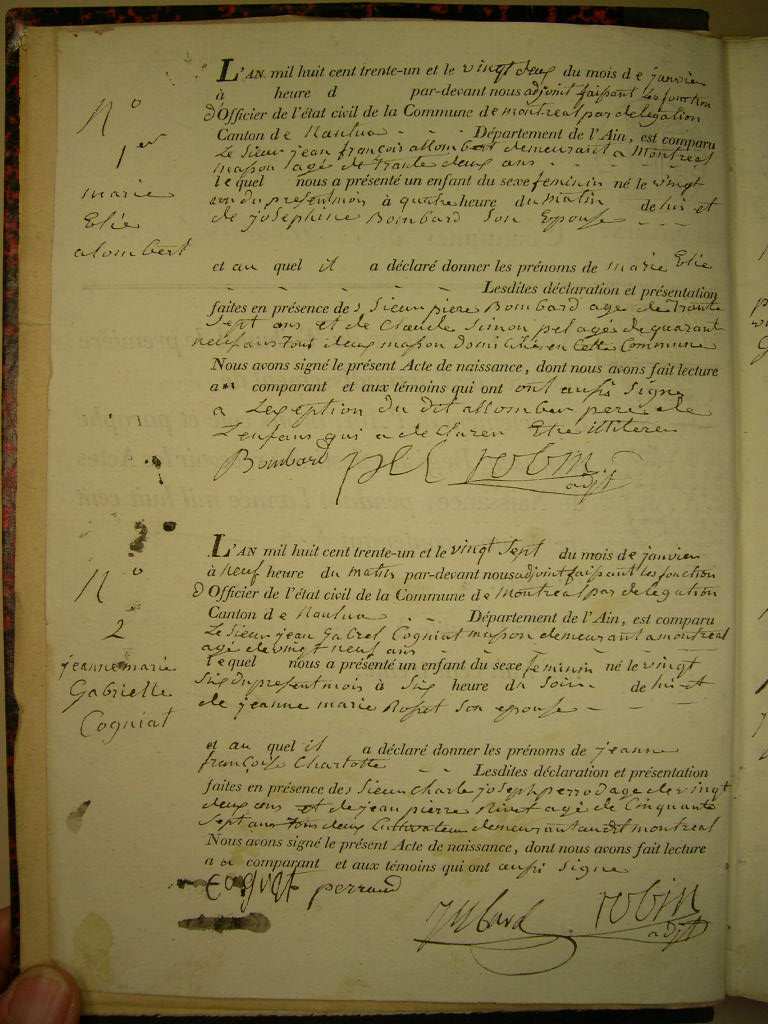 N° 1er
marie
Elie
alombert
L'AN mil huit cent trente-un et le vingt deux du mois de janvier
à heure d par-devant nous adjoint faisant les fonction
D'Officier de l'état civil de la Commune de montreal par delegation
Canton de Nantua Département de l'Ain, est comparu
Le Sieur jean françois allombert demeurant a Montreal
masson agé de trante deux ans
lequel nous a présenté un enfant du sexe feminin né le vingt
du present mois à quatre heure du matin de lui et
de josephine Bombard Son Epouse
et au quel il a déclaré donner les prénoms de marie Elie
Lesdites déclaration et présentation
faites en présence des Sieur piere Bombard age de trante
Sept ans et de Claude Simon pel age de quarant
neuf ans tous deux masson domicilier en Cette Commune
Nous avons signé le présent Acte de naissance, dont nous avons fait lecture
au comparant et aux témoins qui ont ont aussi Signe
a Lexeption du dit allomber pere de
Lenfans qui a de Claren Etre illitere
Bombard pel robin
adjt
N° 2
jeanne marie
Gabrielle
Cogniat
L'AN mil huit cent trente-un et le vingt Sept du mois de janvier
à neuf heure du matin par-devant nous adjoint faisant les fonction
D Officier de l'état civil de la Commune de Montreal par delegation
Canton de Nantua Département de l'Ain, est comparu
Le Sieur jean Gabrel Cogniat masson demeurant a montreal
agé de vingt neuf ans
lequel nous a présenté un enfant du sexe feminin né le vingt
Six du present mois à Six heure du Soir de lui et
de jeanne marie Rosset Son epouse
et au quel il a déclaré donner les prénoms de jeanne
françoise Charlotte Lesdites déclaration et présentation
faites en présence des Sieur Charle joseph perrod age de vingt
deux ans et de jean pierre age de Cinquante
Sept ans tous deux Cultivateur demeurant audit montreal
Nous avons signé le présent Acte de naissance, dont nous avons fait lecture
au comparant et aux témoins qui ont aussi Signe
perraud
robin
adjt